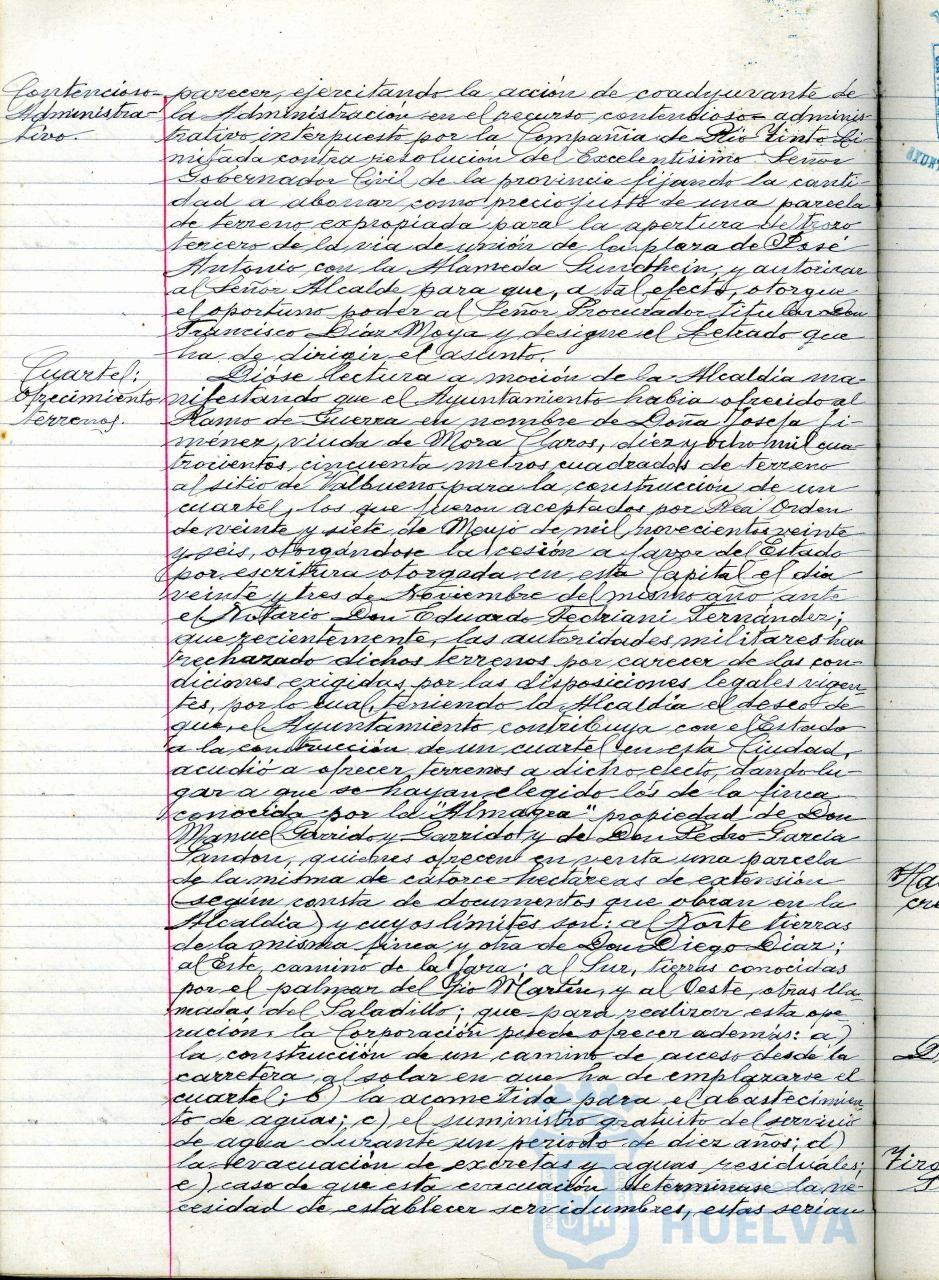 Contencioso-
Administra-
tivo.
parecer, ejercitando la acción de coadyuvante de
la Administración en el recurso contencioso-adminis-
trativo interpuesto por la Compañía de Rio Tinto Li-
mitada contra resolución del Excelentísimo Señor
Gobernador Civil de la provincia fijando la canti-
dad a abonar, como precio justo de una parcela
de terreno expropiada para la apertura del trozo
tercero de la vía de unión de la plaza de José
Antonio con la Alameda Sundhein, y autorizar
al Señor Alcalde para que, a tal efecto, otorgue
el oportuno poder al Señor Procurador titular Don
Francisco Díaz Moya y designe el Letrado que
ha de dirigir el asunto.
Cuartel:
ofrecimiento
terrenos.
Dióse lectura a moción de la Alcaldía ma-
nifestando que el Ayuntamiento había ofrecido al
Ramo de Guerra en nombre de Doña Josefa Ji-
ménez, viuda de Mora Claros, diez y ocho mil cua-
trocientos cincuenta metros cuadrados de terreno
al sitio de Valbueno para la construcción de un
cuartel, los que fueron aceptados por Real Orden
de veinte y siete de Mayo de mil novecientos veinte
y seis, otorgándose la cesión a favor del Estado
por escritura otorgada en esta Capital el día
veinte y tres de Noviembre del mismo año ante
el Notario Don Eduardo Fedriani Fernández;
que recientemente, las autoridades militares han
rechazado dichos terrenos por carecer de las con-
diciones exigidas por las disposiciones legales vigen-
tes, por lo cual, teniendo la Alcaldía el deseo de
que el Ayuntamiento contribuya con el Estado
a la construcción de un cuartel en esta Ciudad,
acudió a ofrecer terrenos a dicho efecto, dando lu-
gar a que se hayan elegido los de la finca
conocida por la "Almagra" propiedad de Don
Manuel Garrido y Garrido y de Don Pedro García
quienes ofrecen en venta una parcela
de la misma de catorce hectáreas de extensión
(según consta de documentos que obran en la
Alcaldía) y cuyos límites son: al Norte tierras
de la misma finca y otra de Don Diego Díaz;
al Este, camino de la Jara; al Sur, tierras conocidas
por el palmar del Tío Martín, y al Oeste, otras lla-
madas del Saladillo; que para realizar esta ope-
ración, la Corporación puede ofrecer además: a)
la construcción de un camino de acceso desde la
carretera al solar en que ha de emplazarse el
cuartel; b) la acometida para el abastecimien-
to de aguas; c) el suministro gratuito del servicio
de agua durante un periodo de diez años; d)
la evacuación de excretas y aguas residuales;
e) caso de que esta evacuación determinase la ne-
cesidad de establecer servidumbres, estas serían
HUELVA